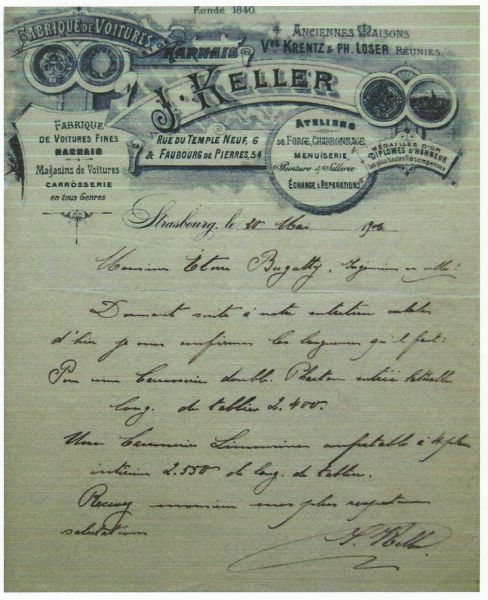 Fondé 1840.
FABRIQUE DE VOITURES
HARNAIS
ANCIENNES MAISONS
Vve KRENTZ & PH. LOSER RÉUNIES
J. KELLER
FABRIQUE
DE VOITURES FINES
HARNAIS
Magasins de Voitures
CARROSSERIE
en tous Genres
RUE DU TEMPLE NEUF, 6
& FAUBOURG DE PIERRES, 54
ATELIERS
DE FORGE, CHARRONNAGE,
MENUISERIE,
Peinture & Sellerie
ÉCHANGE & RÉPARATIONS
MÉDAILLES D'OR
DIPLÔMES D'HONNEUR
les plus hautes Récompenses
Strasbourg, le 20 Mai 1906
Monsieur Etore Bugatty, Ingénieur en ville!
Donnant suite à notre entretien
d'hier je vous confirme les longueurs qu'il faut:
Pour une Carrosserie double Phaeton entrée latérale
long. de tablier 2.400.
Une Carrosserie Limousine confortable à 4 places
intérieur 2.550 de long. de tablier.
Recevez monsieur mes plus respectueuses
salutations
J. Keller